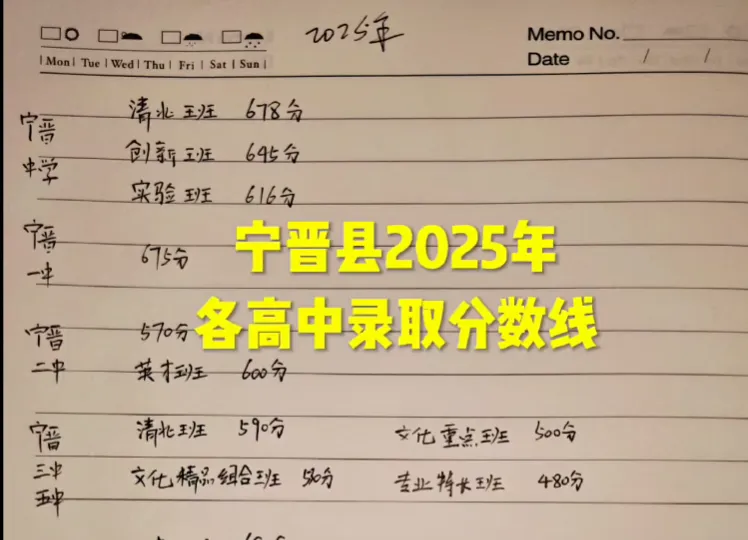 2025年
Memo No.
Mon Tue Wed Thu Fri Sat Sun
Date / /
宁晋中学
清北班 678分
创新班 645分
实验班 616分
宁晋县2025年
宁晋一中
675分
各高中录取分数线
宁晋二中
570分
英才班 600分
宁晋三中五中
清北班 590分 文化重点班 500分
文化精品组合班 550分 专业特长班 480分